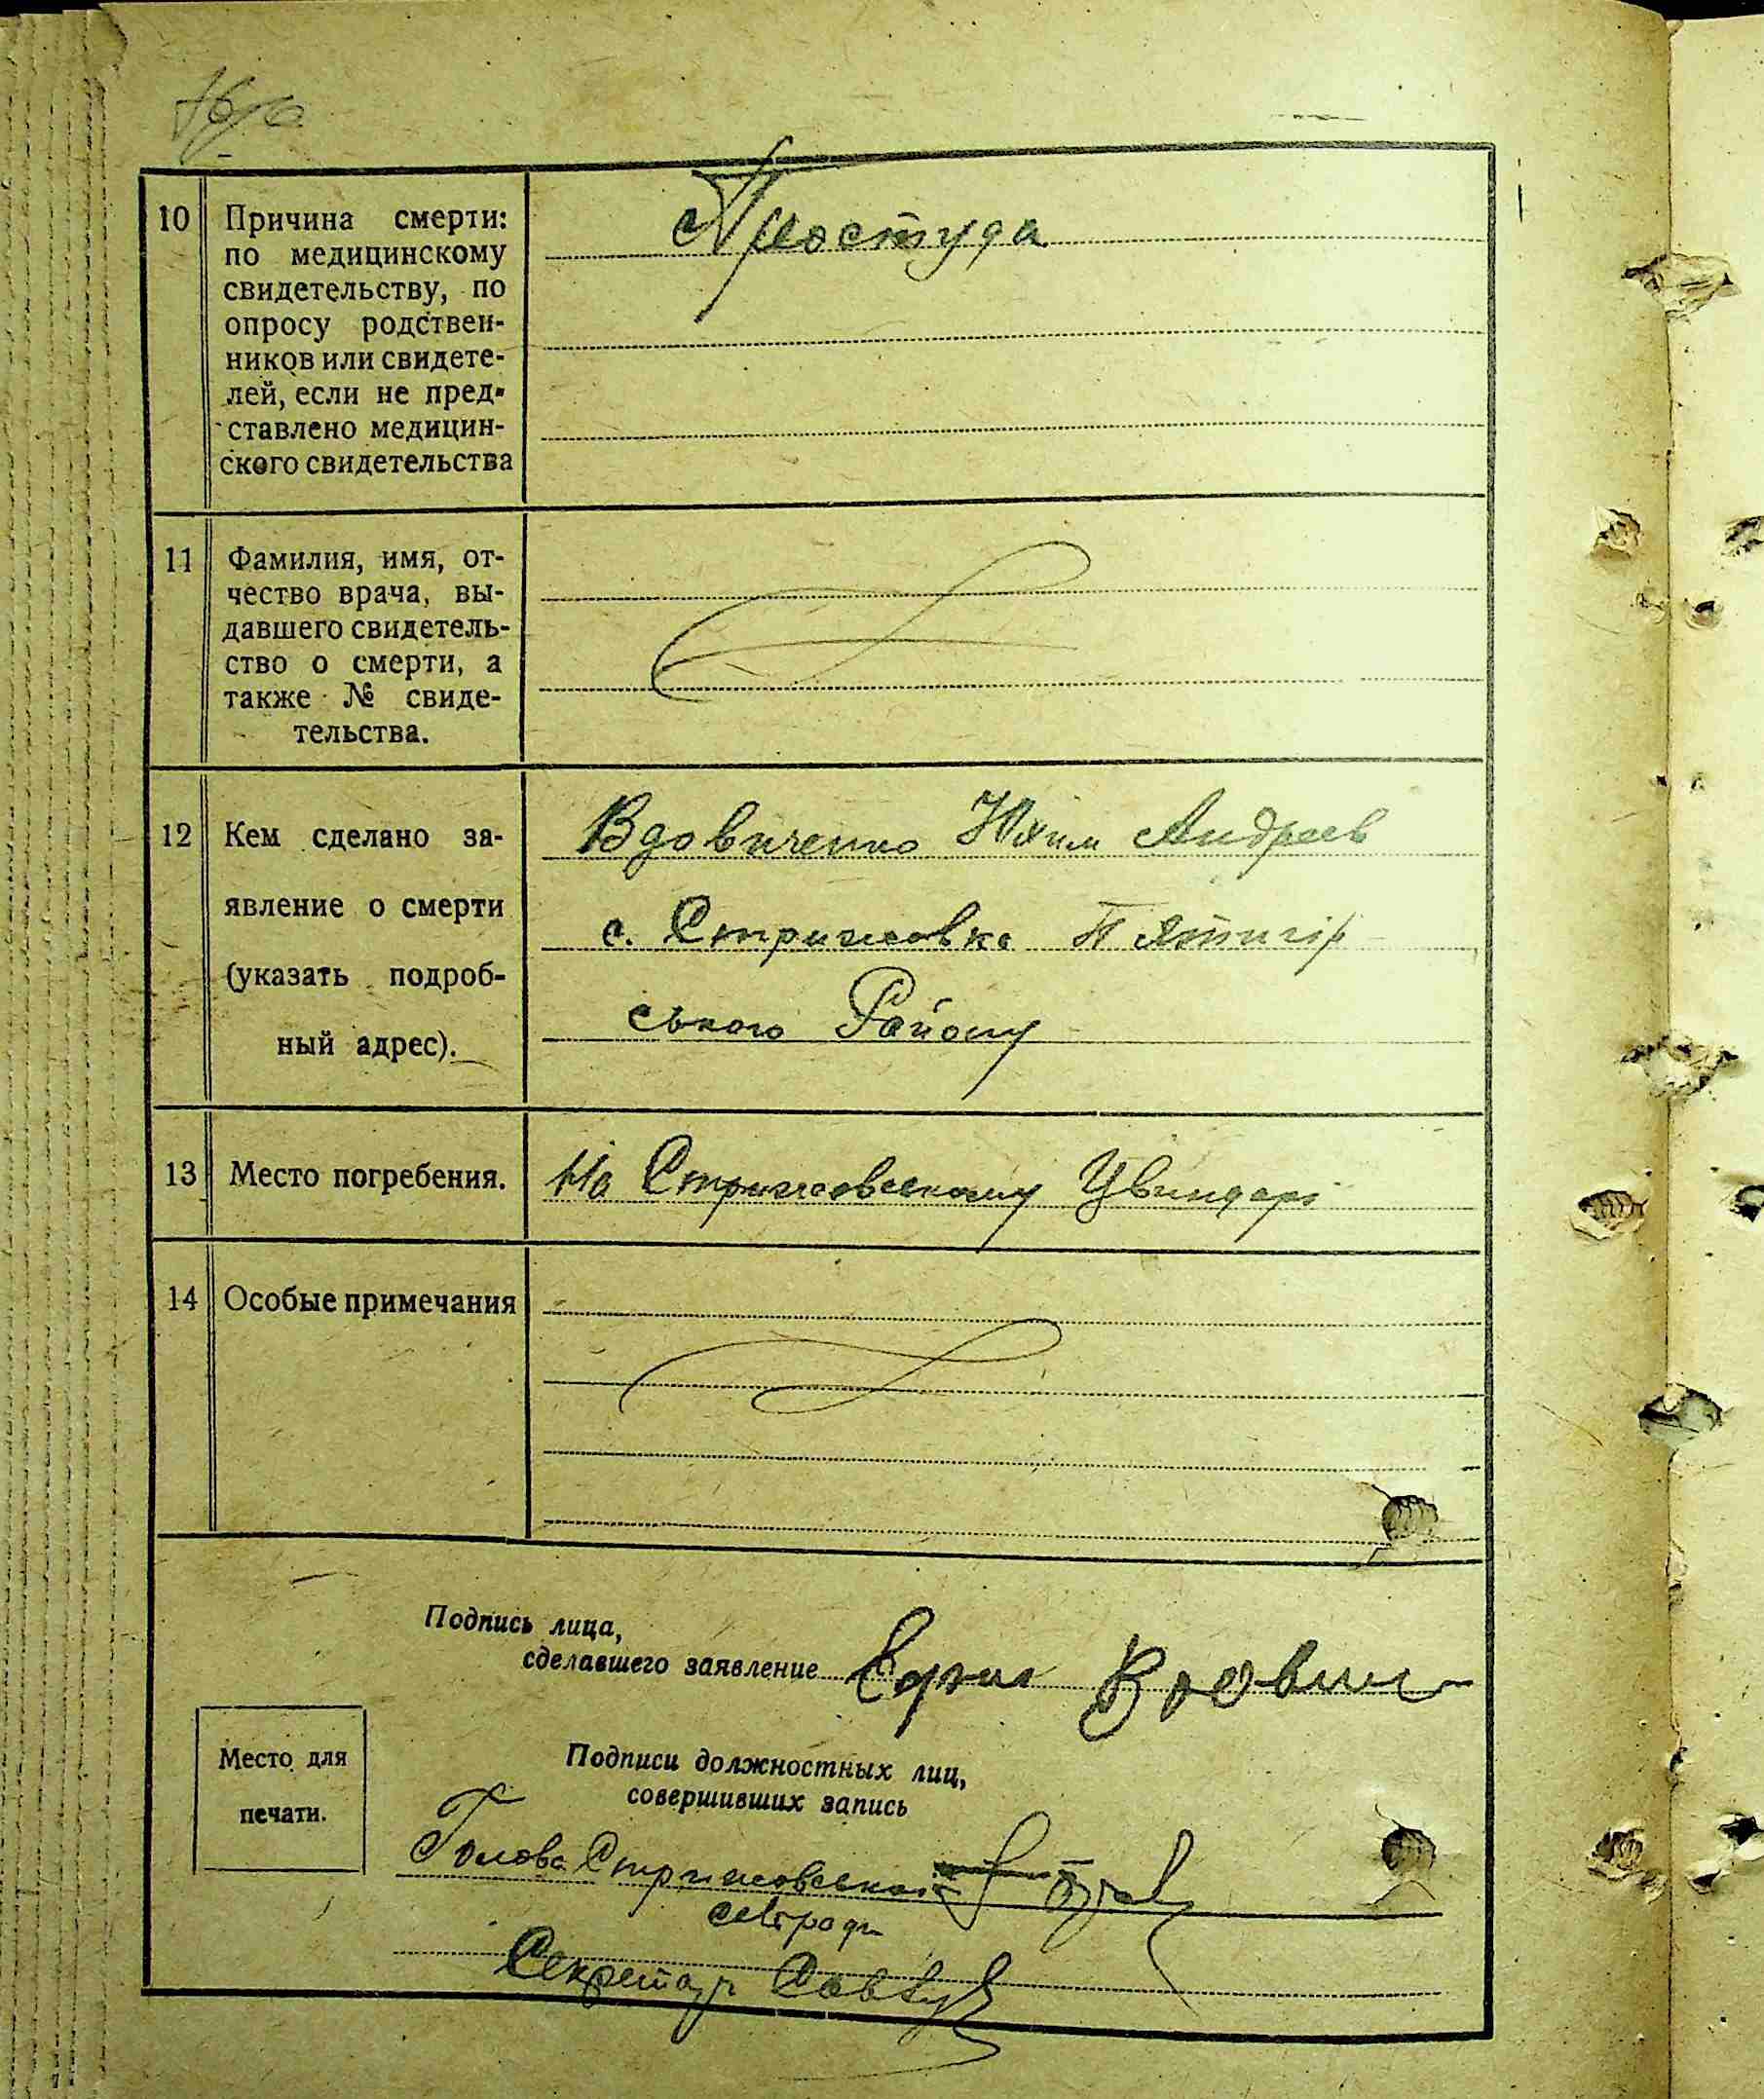 10 Причина смерти:
по медицинскому
свидетельству, по
опросу родствен-
ников или свидете-
лей, если не пред-
ставлено медицин-
ского свидетельства
Простуда
11 Фамилия, имя, от-
чество врача, вы-
давшего свидетель-
ство о смерти, а
также № свиде-
тельства.
12 Кем сделано за-
явление о смерти
(указать подроб-
ный адрес).
Вдовиченко Юхим Андреев
с. Стрижовка Пятигір
ського Району
13 Место погребения.
На Стрижовському Цвинтарі
14 Особые примечания
Подпись лица,
сделавшего заявление
Место для
печати.
Подписи должностных лиц,
совершивших запись
Голова Стрижовської
сільради
Секретар